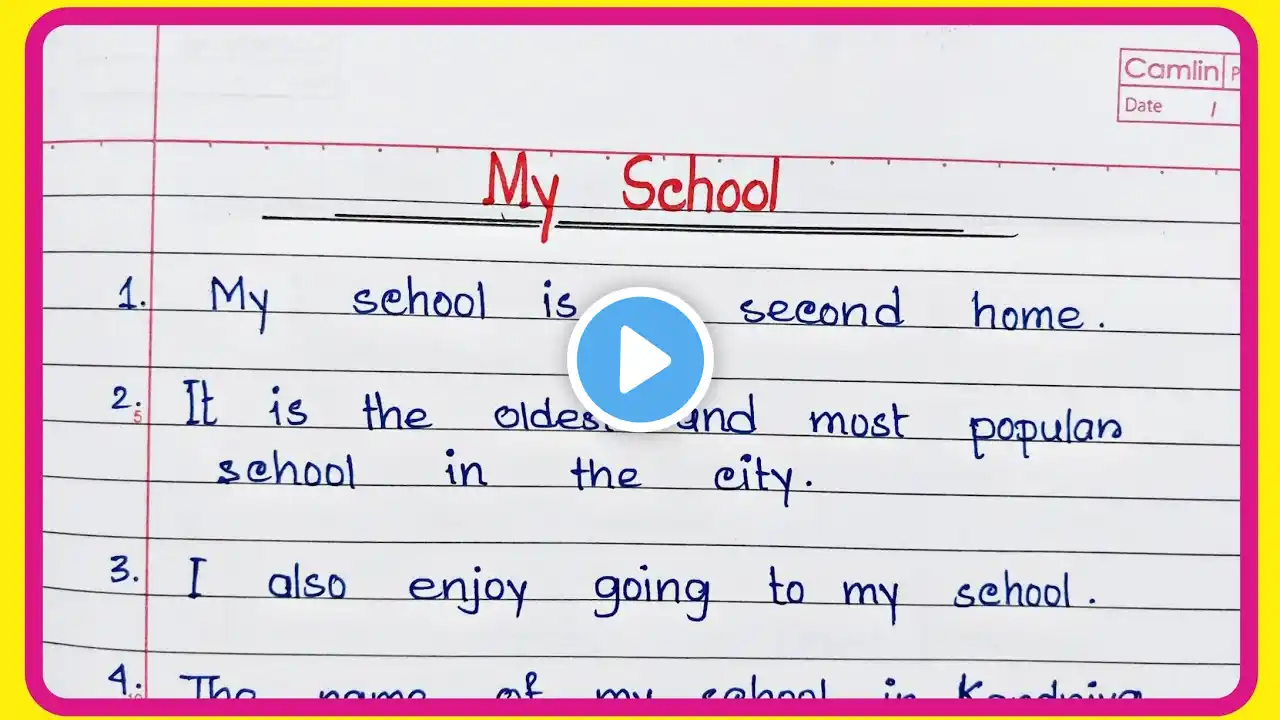 Camlin P
Date /
My School
1. My school is second home.
2. It is the oldest and most popular
5
school in the city.
3. I also enjoy going to my school.
4. The name of my school is Kendriya